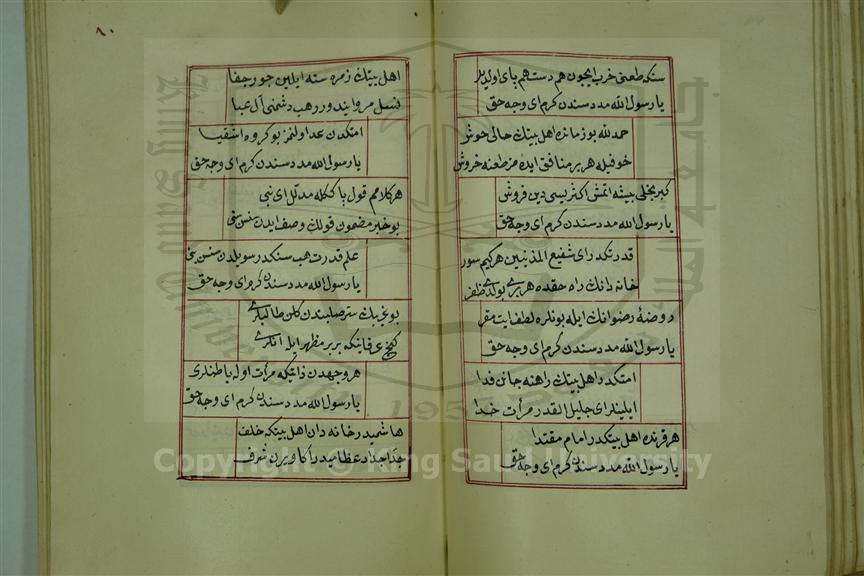 سنكه طعنی خرب ایچون هم دست هم پای اولدیلر
یا رسول الله مدد سندن كرم ای وجه حق
حمد لله بو زمانده اهل بیتك حالی خوش
خوفیله هر بر منافق ایده مز طعنه خروش
كبر بخلی پیشه اتمش اكثریسی دین فروش
یا رسول الله مدد سندن كرم ای وجه حق
قدرتكدر ای شفیع المذنبین هر كیم سور
خانه دانك راه حقده هر بری بولدی ظفر
روضۀ رضوانك ایله بونلره لطفایت مقر
یا رسول الله مدد سندن كرم ای وجه حق
امتكدر اهل بیتك راهنه جانن فدا
ایلینلر ای جلیل القدر مرأت خدا
هر قرنده اهل بیتكدر امام مقتدا
یا رسول الله مدد سندن كرم ای وجه حق
٨٠
اهل بیتك زمره سنه ایلین جور جفا
نسل مروایندور هب دشمنی آل عبا
امتكدن عد اولنمز بو كروه اشقیا
یا رسول الله مدد سندن كرم ای وجه حق
هر كلامم قول باككله مدللدر ای نبی
بو خبر مضمون قولك وصف ایدن سنسن سنی
علم قدرت هب سنكدر سویلدن سنسن بنی
یا رسول الله مدد سندن كرم ای وجه حق
بو نجه بیك سنر صلبندن كلن طالبلری
كنج عرفاینكه بر بر مظهر ایله انلری
هر وجهدن ذاتیكه مرأت اوله باطنلری
یا رسول الله مدد سندن كرم ای وجه حق
هاشمیدر خانه دان اهل بیتكه خلف
جد اجداد عظامیدر اكا ویرن شرف
Copyright © King Saud University
1957